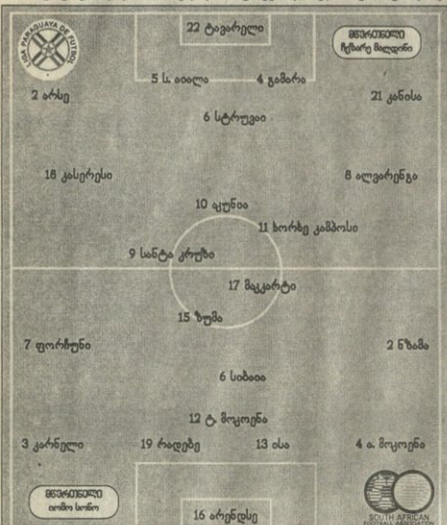 22 ტავარელი
მწვრთნელი
ჩეზარე მალდინი
LIGA PARAGUAYA DE FUTBOL
5 ს. აიალა 4 გამარა
2 არსე 21 კანისა
6 სტრუვაი
18 კასერესი 8 ალვარენგა
10 აკუნია
11 ხორხე კამპოსი
9 სანტა კრუზი
17 მაკკარტი
15 ზუმა
7 ფორჩუნი 2 ნზამა
6 სიბაია
12 ტ. მოკოენა
3 კარნელი 19 რადებე 13 ისა 4 ა. მოკოენა
მწვრთნელი
იომო სონო
16 არენდსე
SOUTH AFRICAN
FOOTBALL ASSOCIATION